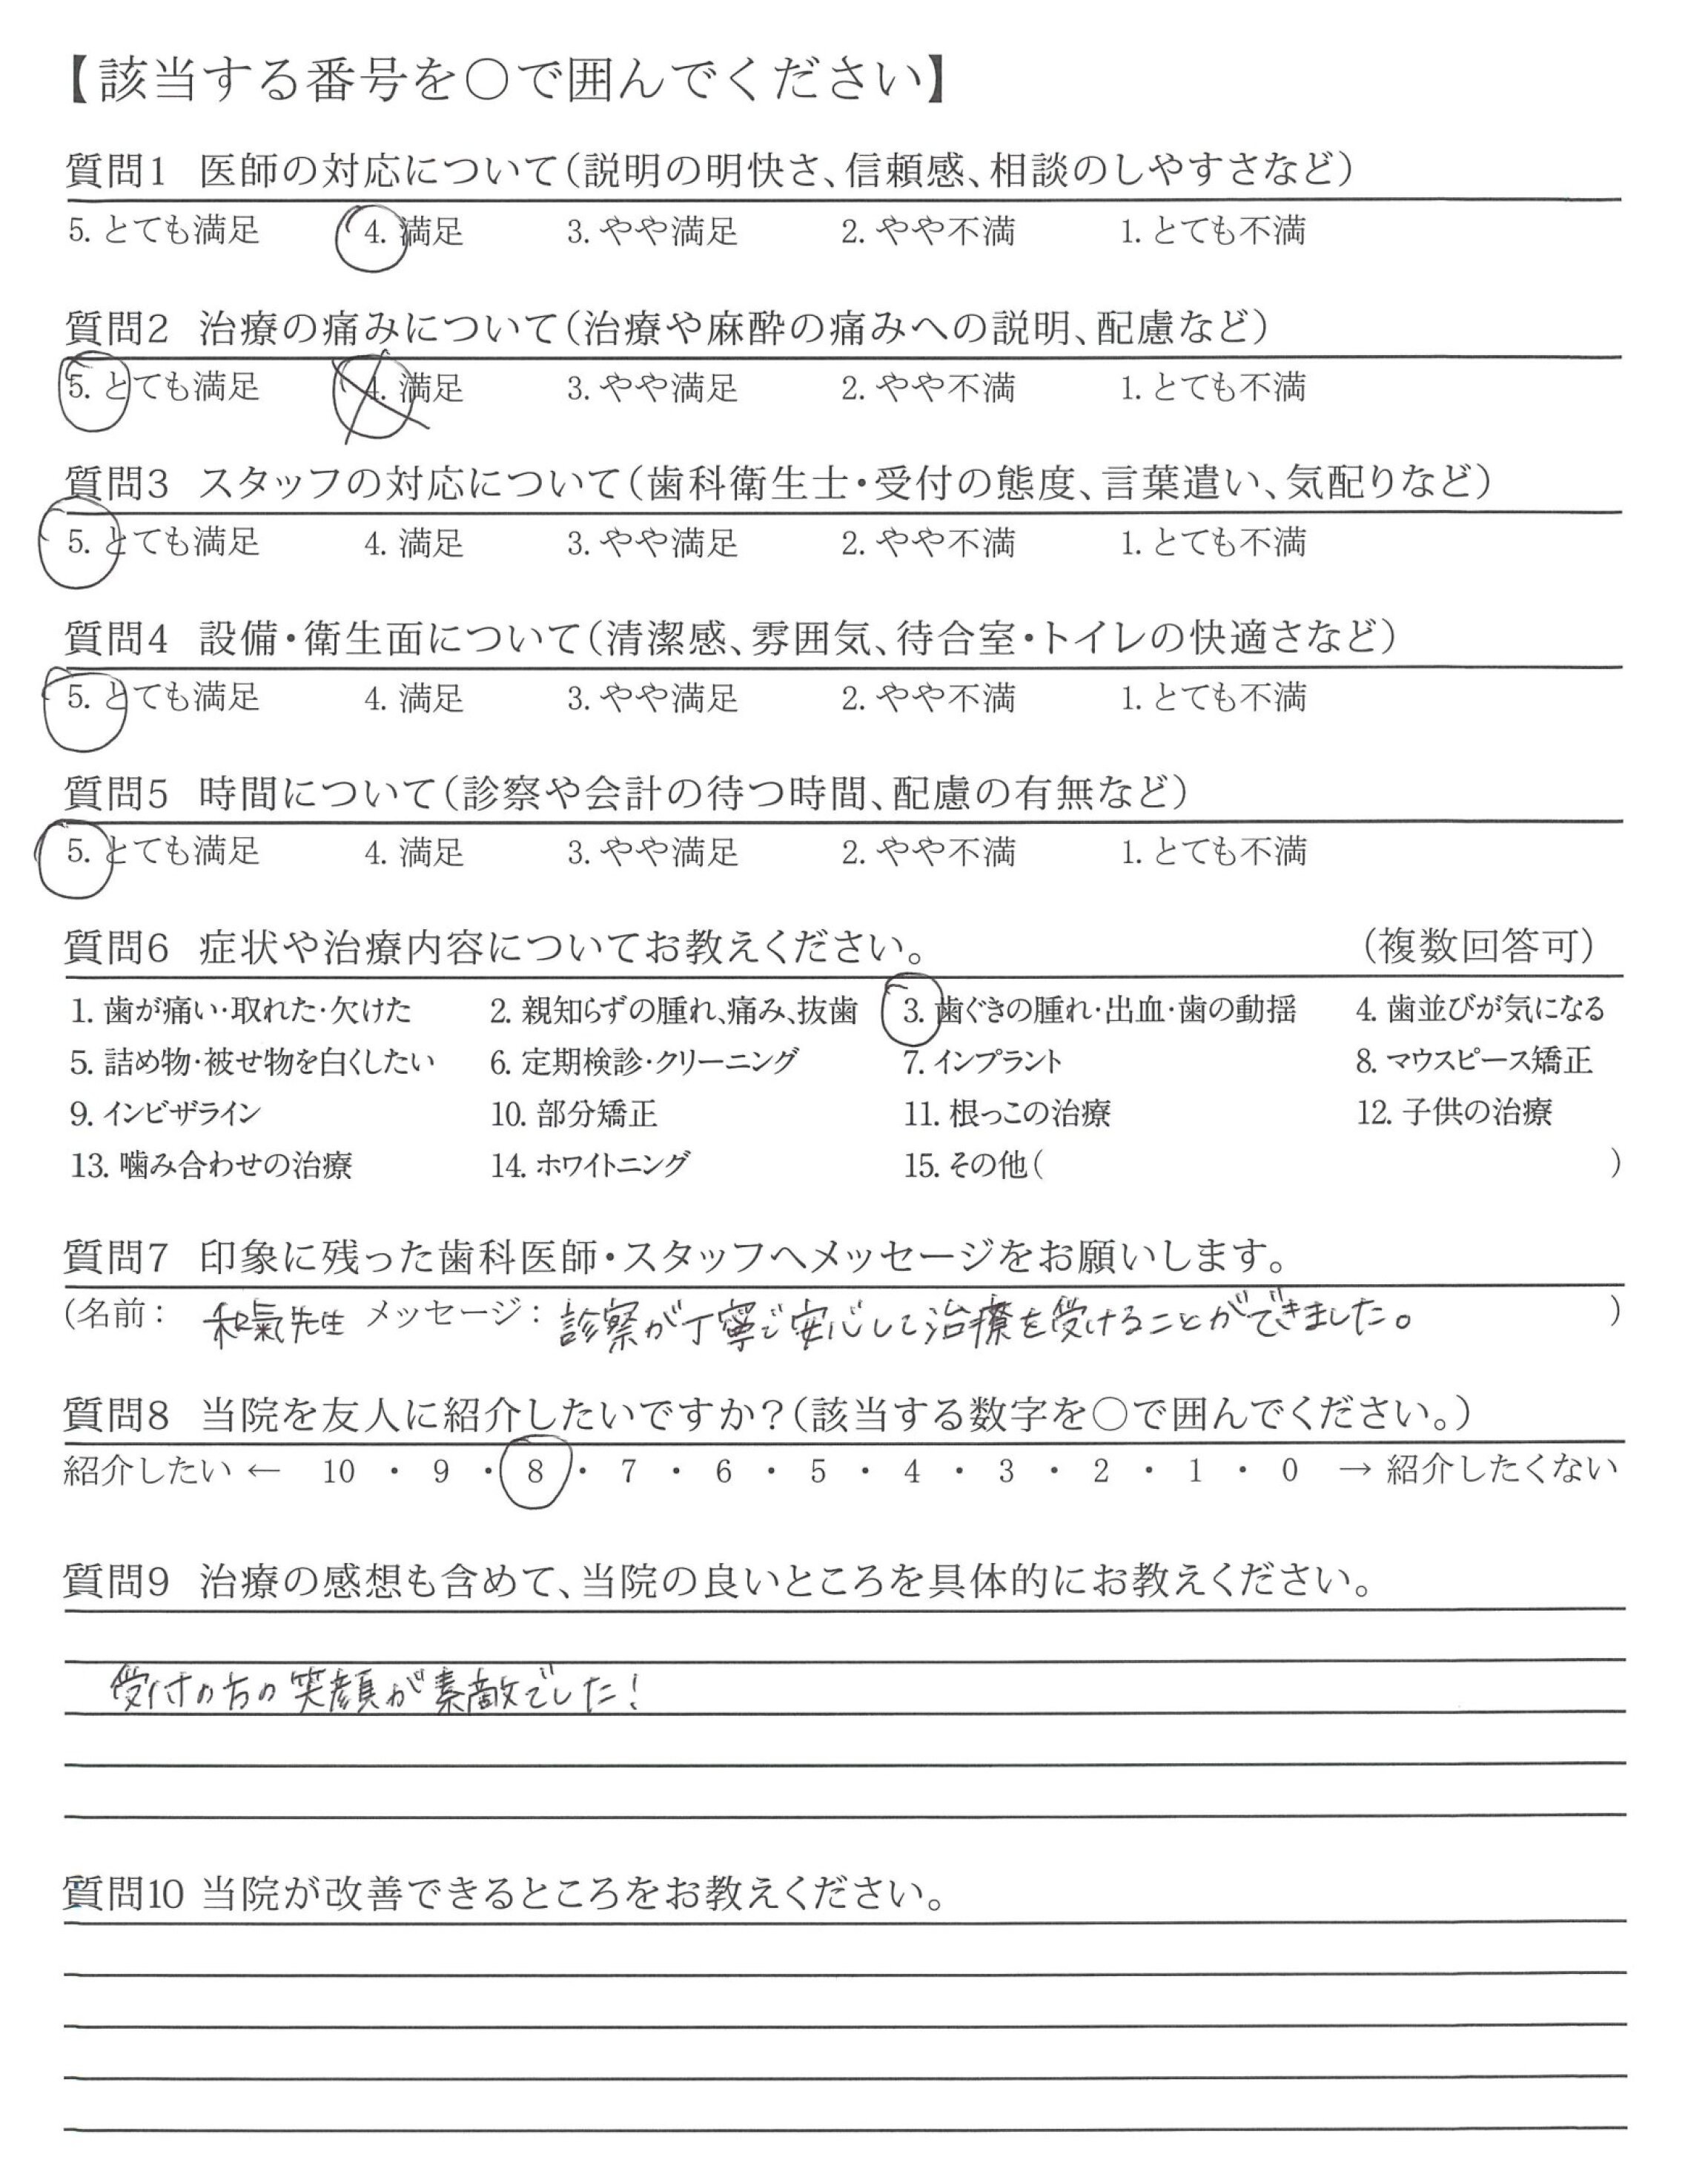 【該当する番号を○で囲んでください】
質問1 医師の対応について(説明の明快さ、信頼感、相談のしやすさなど)
5. とても満足 4. 満足 3. やや満足 2. やや不満 1. とても不満
質問2 治療の痛みについて(治療や麻酔の痛みへの説明、配慮など)
5. とても満足 4. 満足 3. やや満足 2. やや不満 1. とても不満
質問3 スタッフの対応について(歯科衛生士・受付の態度、言葉遣い、気配りなど)
5. とても満足 4. 満足 3. やや満足 2. やや不満 1. とても不満
質問4 設備・衛生面について(清潔感、雰囲気、待合室・トイレの快適さなど)
5. とても満足 4. 満足 3. やや満足 2. やや不満 1. とても不満
質問5 時間について(診察や会計の待つ時間、配慮の有無など)
5. とても満足 4. 満足 3. やや満足 2. やや不満 1. とても不満
質問6 症状や治療内容についてお教えください。 (複数回答可)
1. 歯が痛い・取れた・欠けた 2. 親知らずの腫れ、痛み、抜歯 3. 歯ぐきの腫れ・出血・歯の動揺 4. 歯並びが気になる
5. 詰め物・被せ物を白くしたい 6. 定期検診・クリーニング 7. インプラント 8. マウスピース矯正
9. インビザライン 10. 部分矯正 11. 根っこの治療 12. 子供の治療
13. 噛み合わせの治療 14. ホワイトニング 15. その他( )
質問7 印象に残った歯科医師・スタッフへメッセージをお願いします。
(名前: 和氣先生 メッセージ: 診察が丁寧で安心して治療を受けることができました。 )
質問8 当院を友人に紹介したいですか?(該当する数字を○で囲んでください。)
紹介したい ← 10 ・ 9 ・ 8 ・ 7 ・ 6 ・ 5 ・ 4 ・ 3 ・ 2 ・ 1 ・ 0 → 紹介したくない
質問9 治療の感想も含めて、当院の良いところを具体的にお教えください。
受付の方の笑顔が素敵でした!
質問10 当院が改善できるところをお教えください。